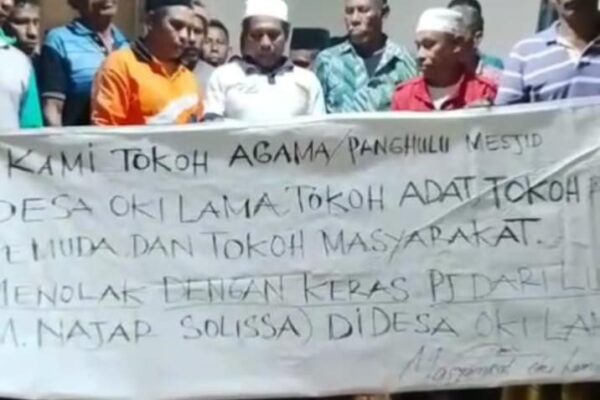 KAMI TOKOH AGAMA/PANGHULU MESJID
DESA OKI LAMA, TOKOH ADAT, TOKOH P
EMUDA DAN TOKOH MASYARAKAT.
MENOLAK DENGAN KERAS PJ DARI LU
M. NAJAR SOLISSA) DI DESA OKI LAM
Masyarakat oki lama